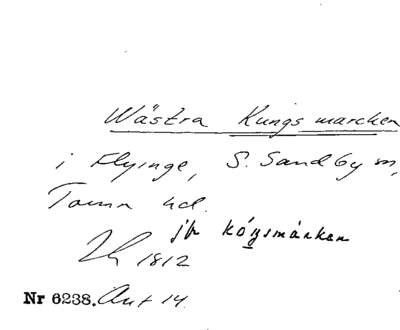 Wästra Kungsmarcken
i Flyinge, S. Sandby sn,
Torna hd.
jfr kóngsmárken
Lh 1812
Nr 6238. Ant 14.